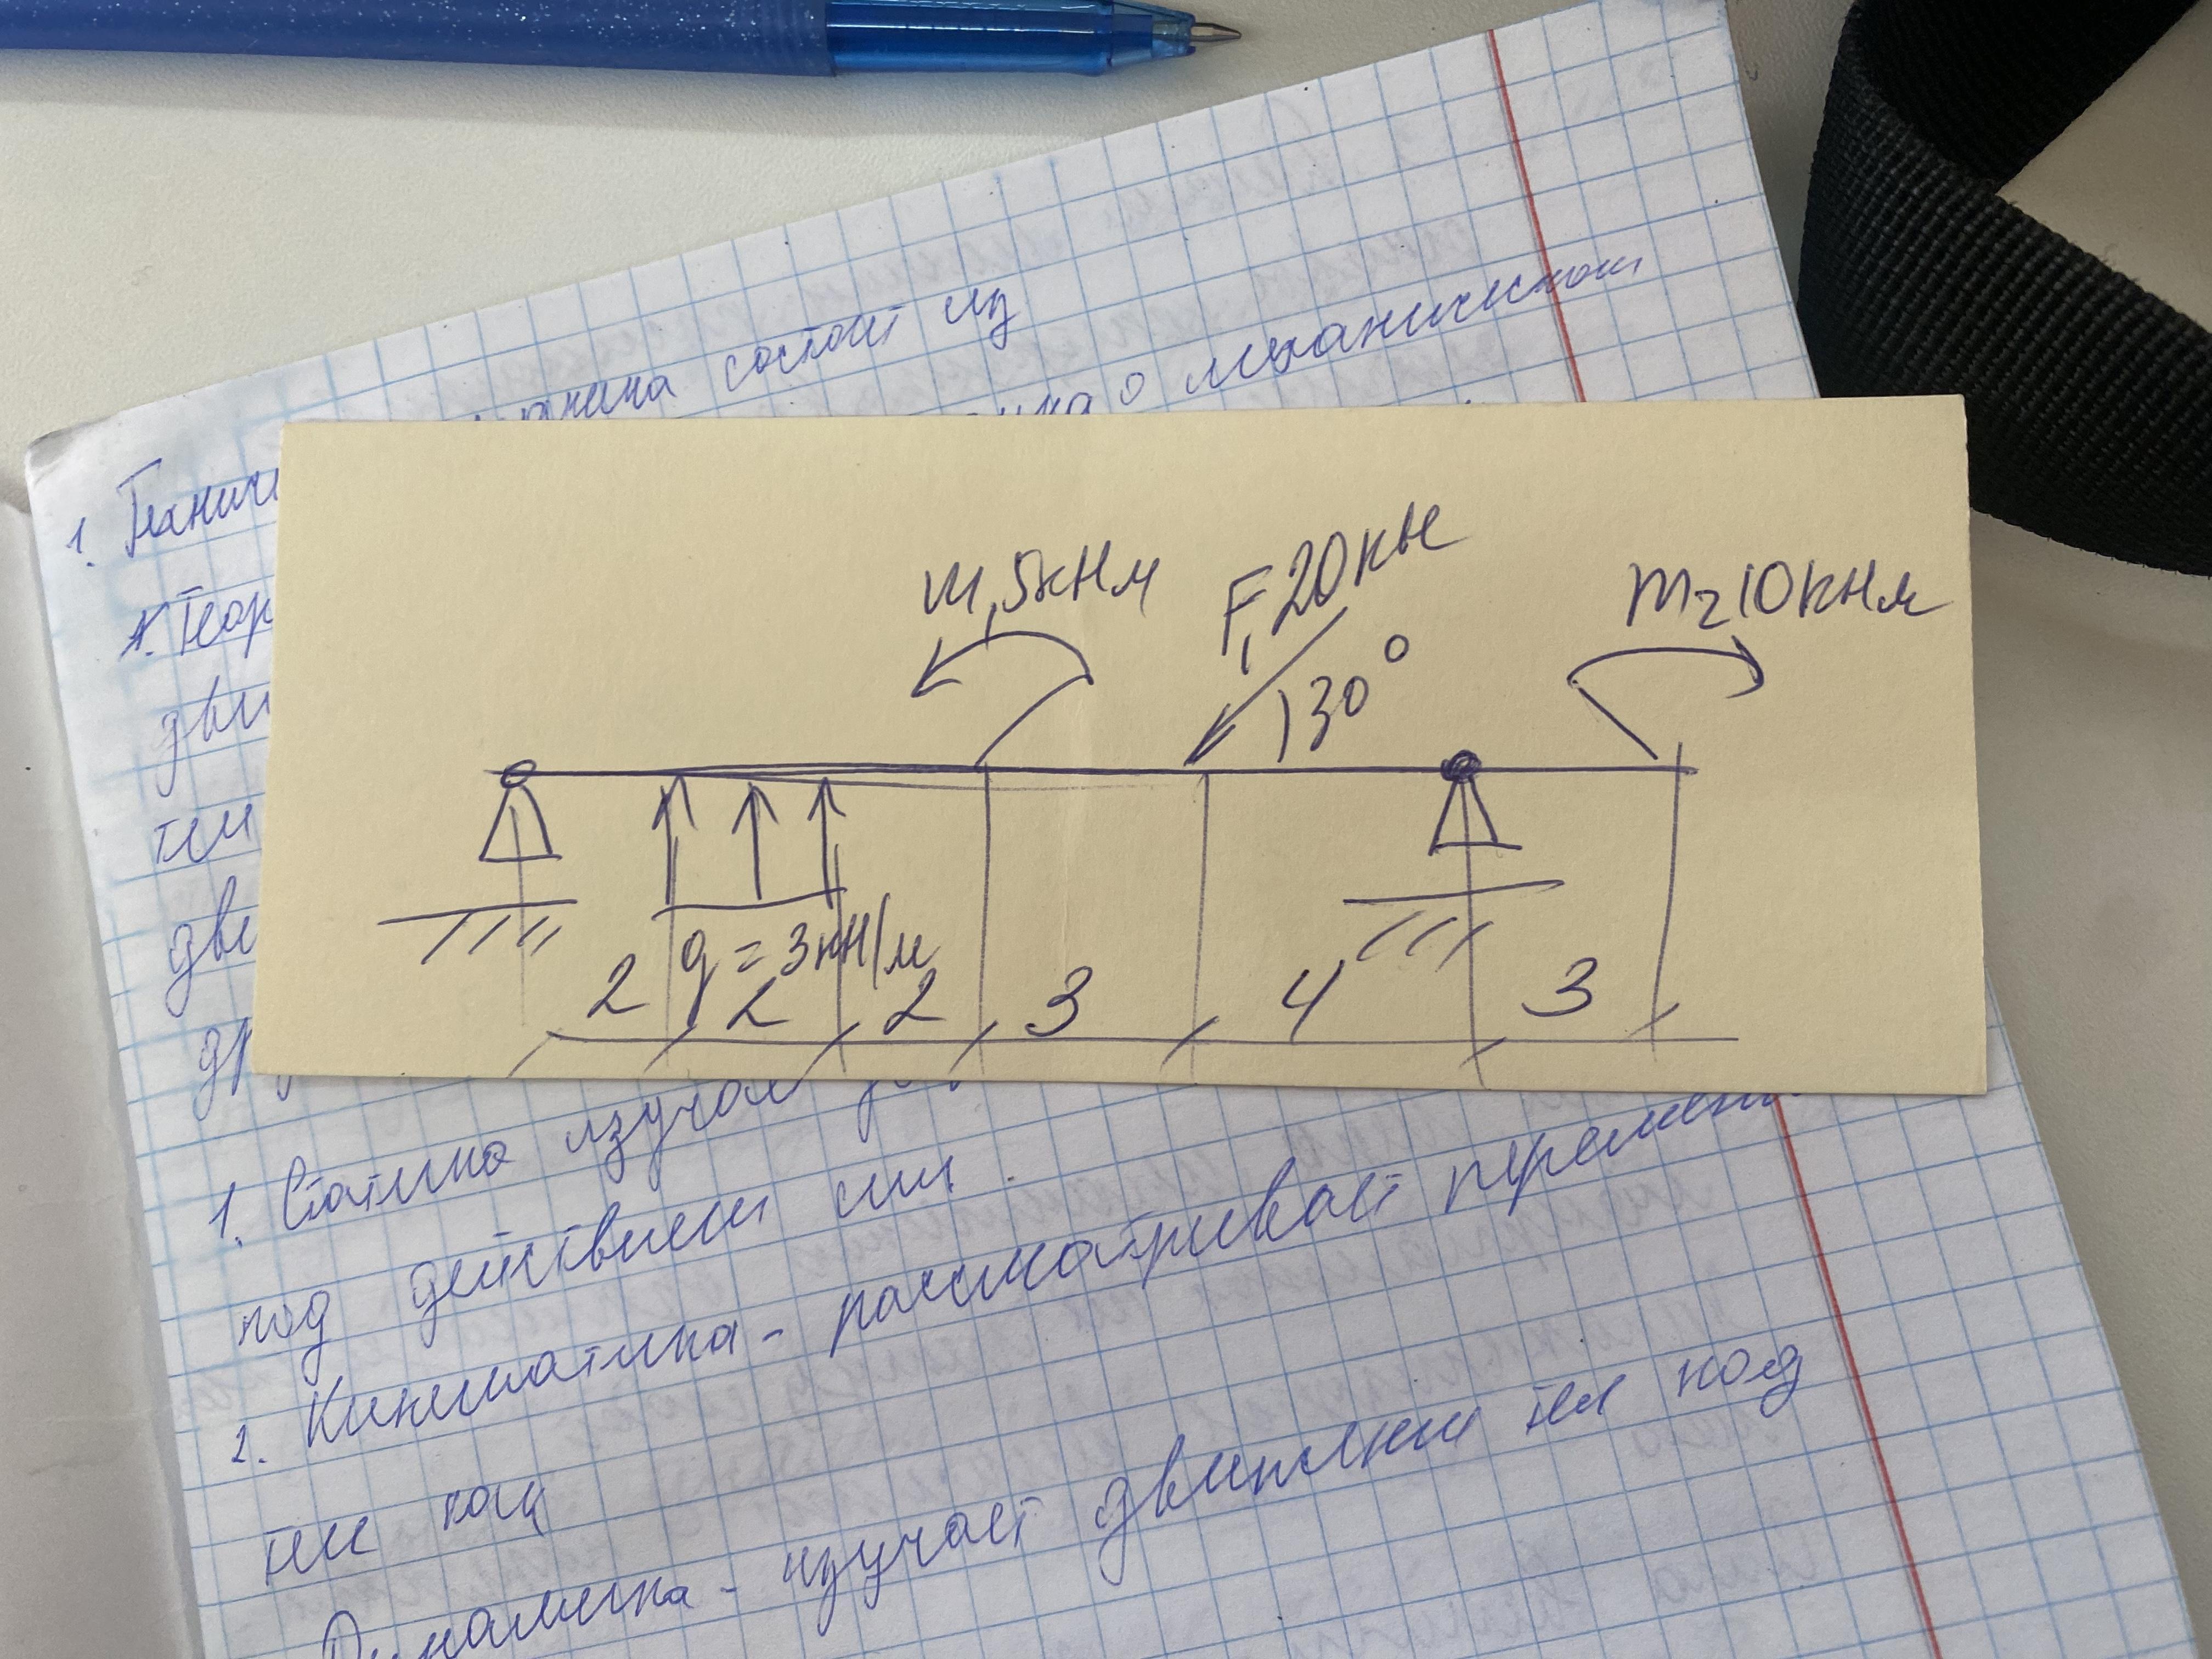 состоит из
о механическом
1. Технич
1. Теор
дви
тел
дви
др
m₁ 5кНм
F₁ 20кН
m₂ 10кНм
)30°
q = 3кН/м
2 2 2 3 4 3
1. Статика изучает
под действием сил.
2. Кинематика - рассматривает перемещ
тел
Динамика - изучает движения тел под